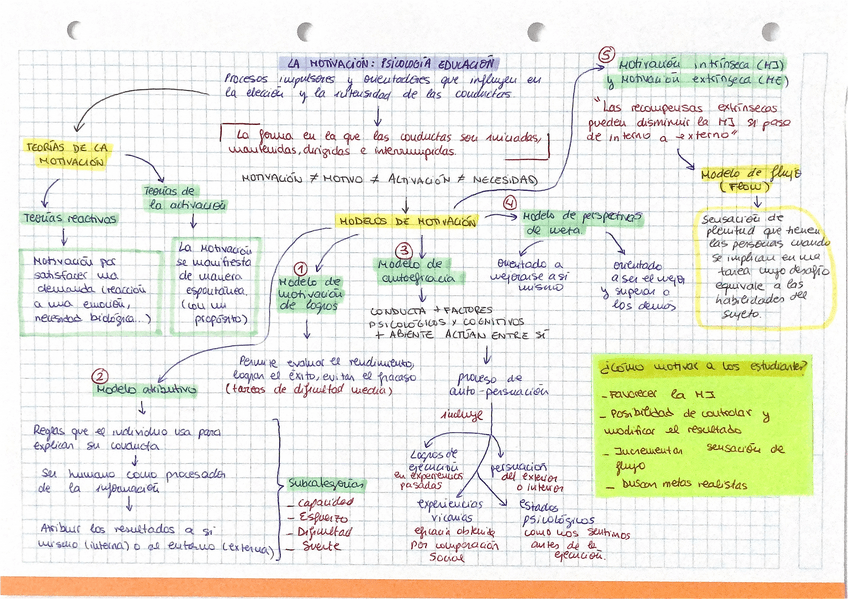 LA MOTIVACIÓN: PSICOLOGÍA EDUCACIÓN
Procesos impulsores y orientadores que influyen en
la elección y la intensidad de las conductas.
La forma en la que las conductas son iniciadas,
mantenidas, dirigidas e interrumpidas.
MOTIVACIÓN ≠ MOTIVO ≠ ACTIVACIÓN ≠ NECESIDAD
TEORÍAS DE LA
MOTIVACIÓN
Teorías reactivas
Motivación por
satisfacer una
demanda (reacción
a una emoción,
necesidad biológica...)
Teorías de
la activación
La motivación
se manifiesta
de manera
espontánea.
(con un
propósito)
MODELOS DE MOTIVACIÓN
1
Modelo de
motivación
de logros
Permite evaluar el rendimiento,
lograr el éxito, evitar el fracaso
(tareas de dificultad media)
2
Modelo atributivo
Reglas que el individuo usa para
explicar su conducta
Ser humano como procesador
de la información
Atribuir los resultados a sí
mismo (interna) o al entorno (externa)
Subcategorías
- Capacidad
- Esfuerzo
- Dificultad
- Suerte
3
Modelo de
autoeficacia
CONDUCTA + FACTORES
PSICOLÓGICOS Y COGNITIVOS
+ ABIENTE ACTÚAN ENTRE SÍ
proceso de
auto-persuación
incluye
Logros de
ejecución
en experiencias
pasadas
persuación
del exterior
o interior
experiencias
vicarias
eficacia obtenida
por comparación
social
Estados
psicológicos
como nos sentimos
antes de la
ejecución.
4
Modelo de perspectivas
de meta
orientado a
mejorarse a sí
mismo
orientado
a ser el mejor
y superar a
los demás
5
Motivación intrínseca (MI)
y Motivación extrínseca (ME)
"Las recompensas extrínsecas
pueden disminuir la MI si paso
de interno a → externo"
Modelo de flujo
(FLOW)
Sensación de
plenitud que tienen
las personas cuando
se implican en una
tarea cuyo desafío
equivale a las
habilidades del
sujeto.
¿Cómo motivar a los estudiantes?
- Favorecer la MI
- Posibilidad de controlar y
modificar el resultado
- Incrementar sensación de
flujo
- Buscan metas realistas